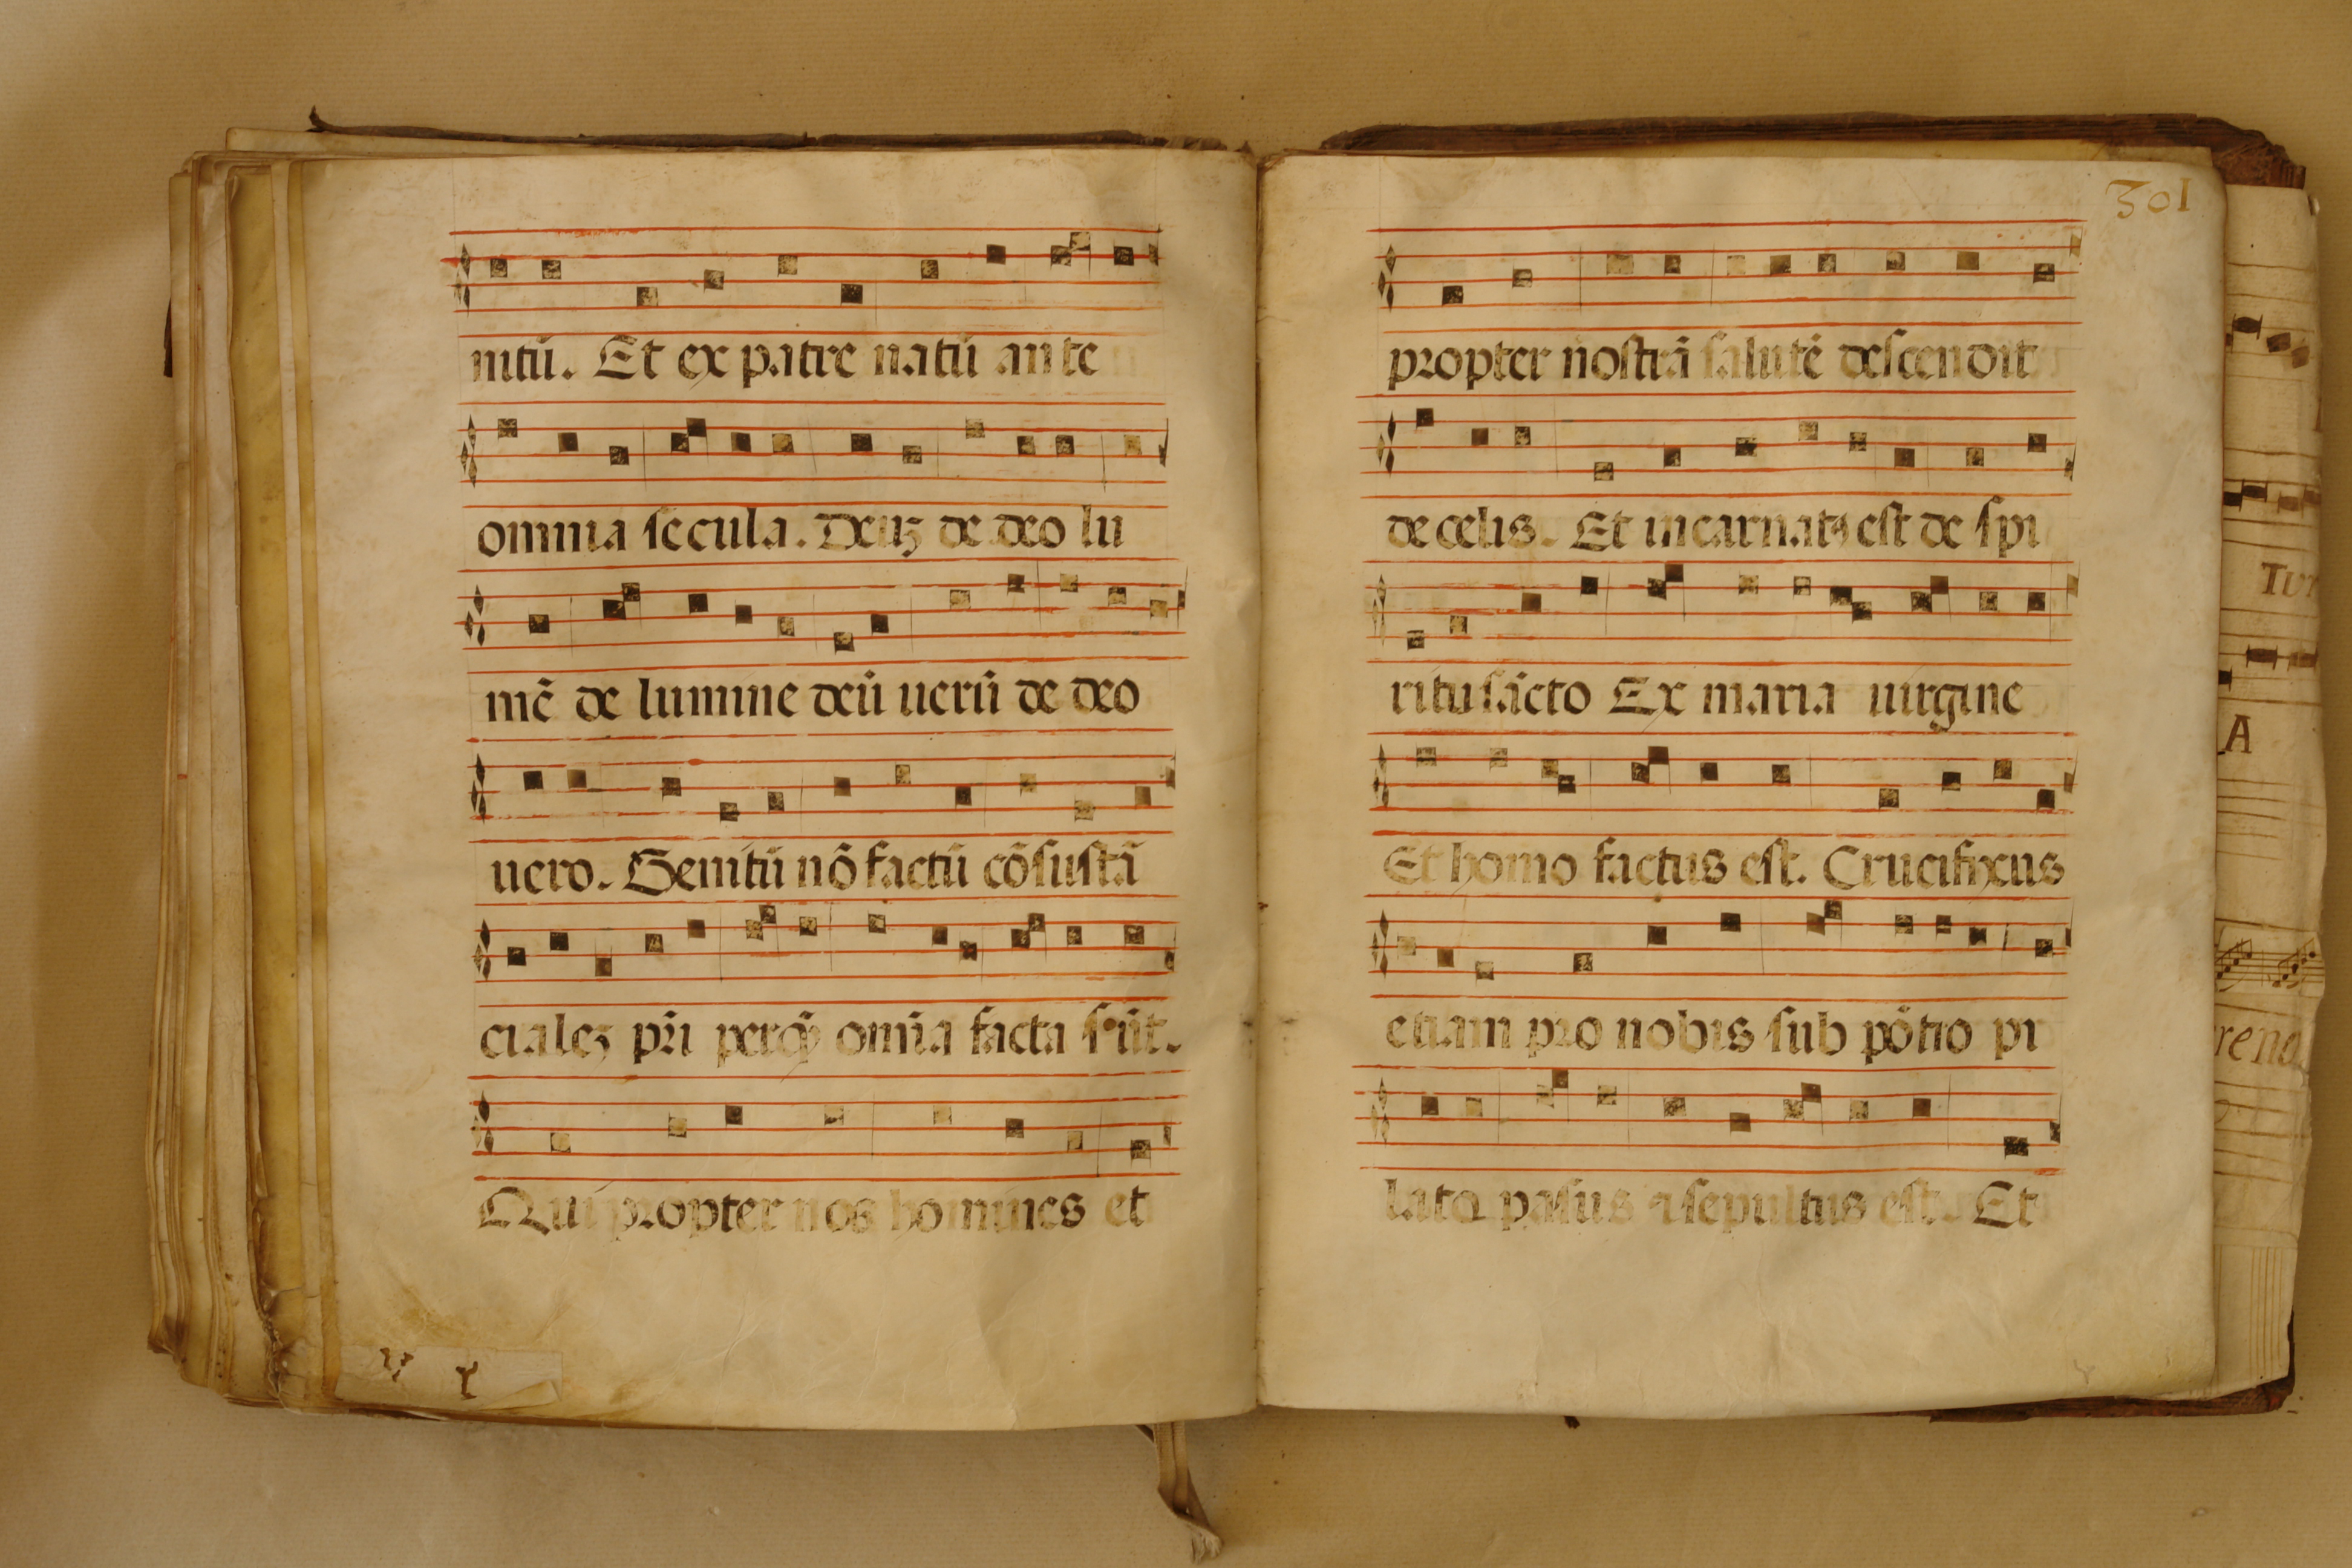 nitū. Et ex patre natū ante
omnia secula. Deuȝ de deo lu
mē de lumine deū uerū de deo
uero. Genitū nō factū cōsustā
cialeȝ pr̄i per qȝ omīa facta sūt.
Qui propter nos homines et
301
propter nostrā salutē descendit
de celis. Et incarnatꝰ est de spi
ritu sācto Ex maria uirgine
Et homo factus est. Crucifixus
etiam pro nobis sub pōtio pi
lato pasus ⁊ sepultus est. Et
A